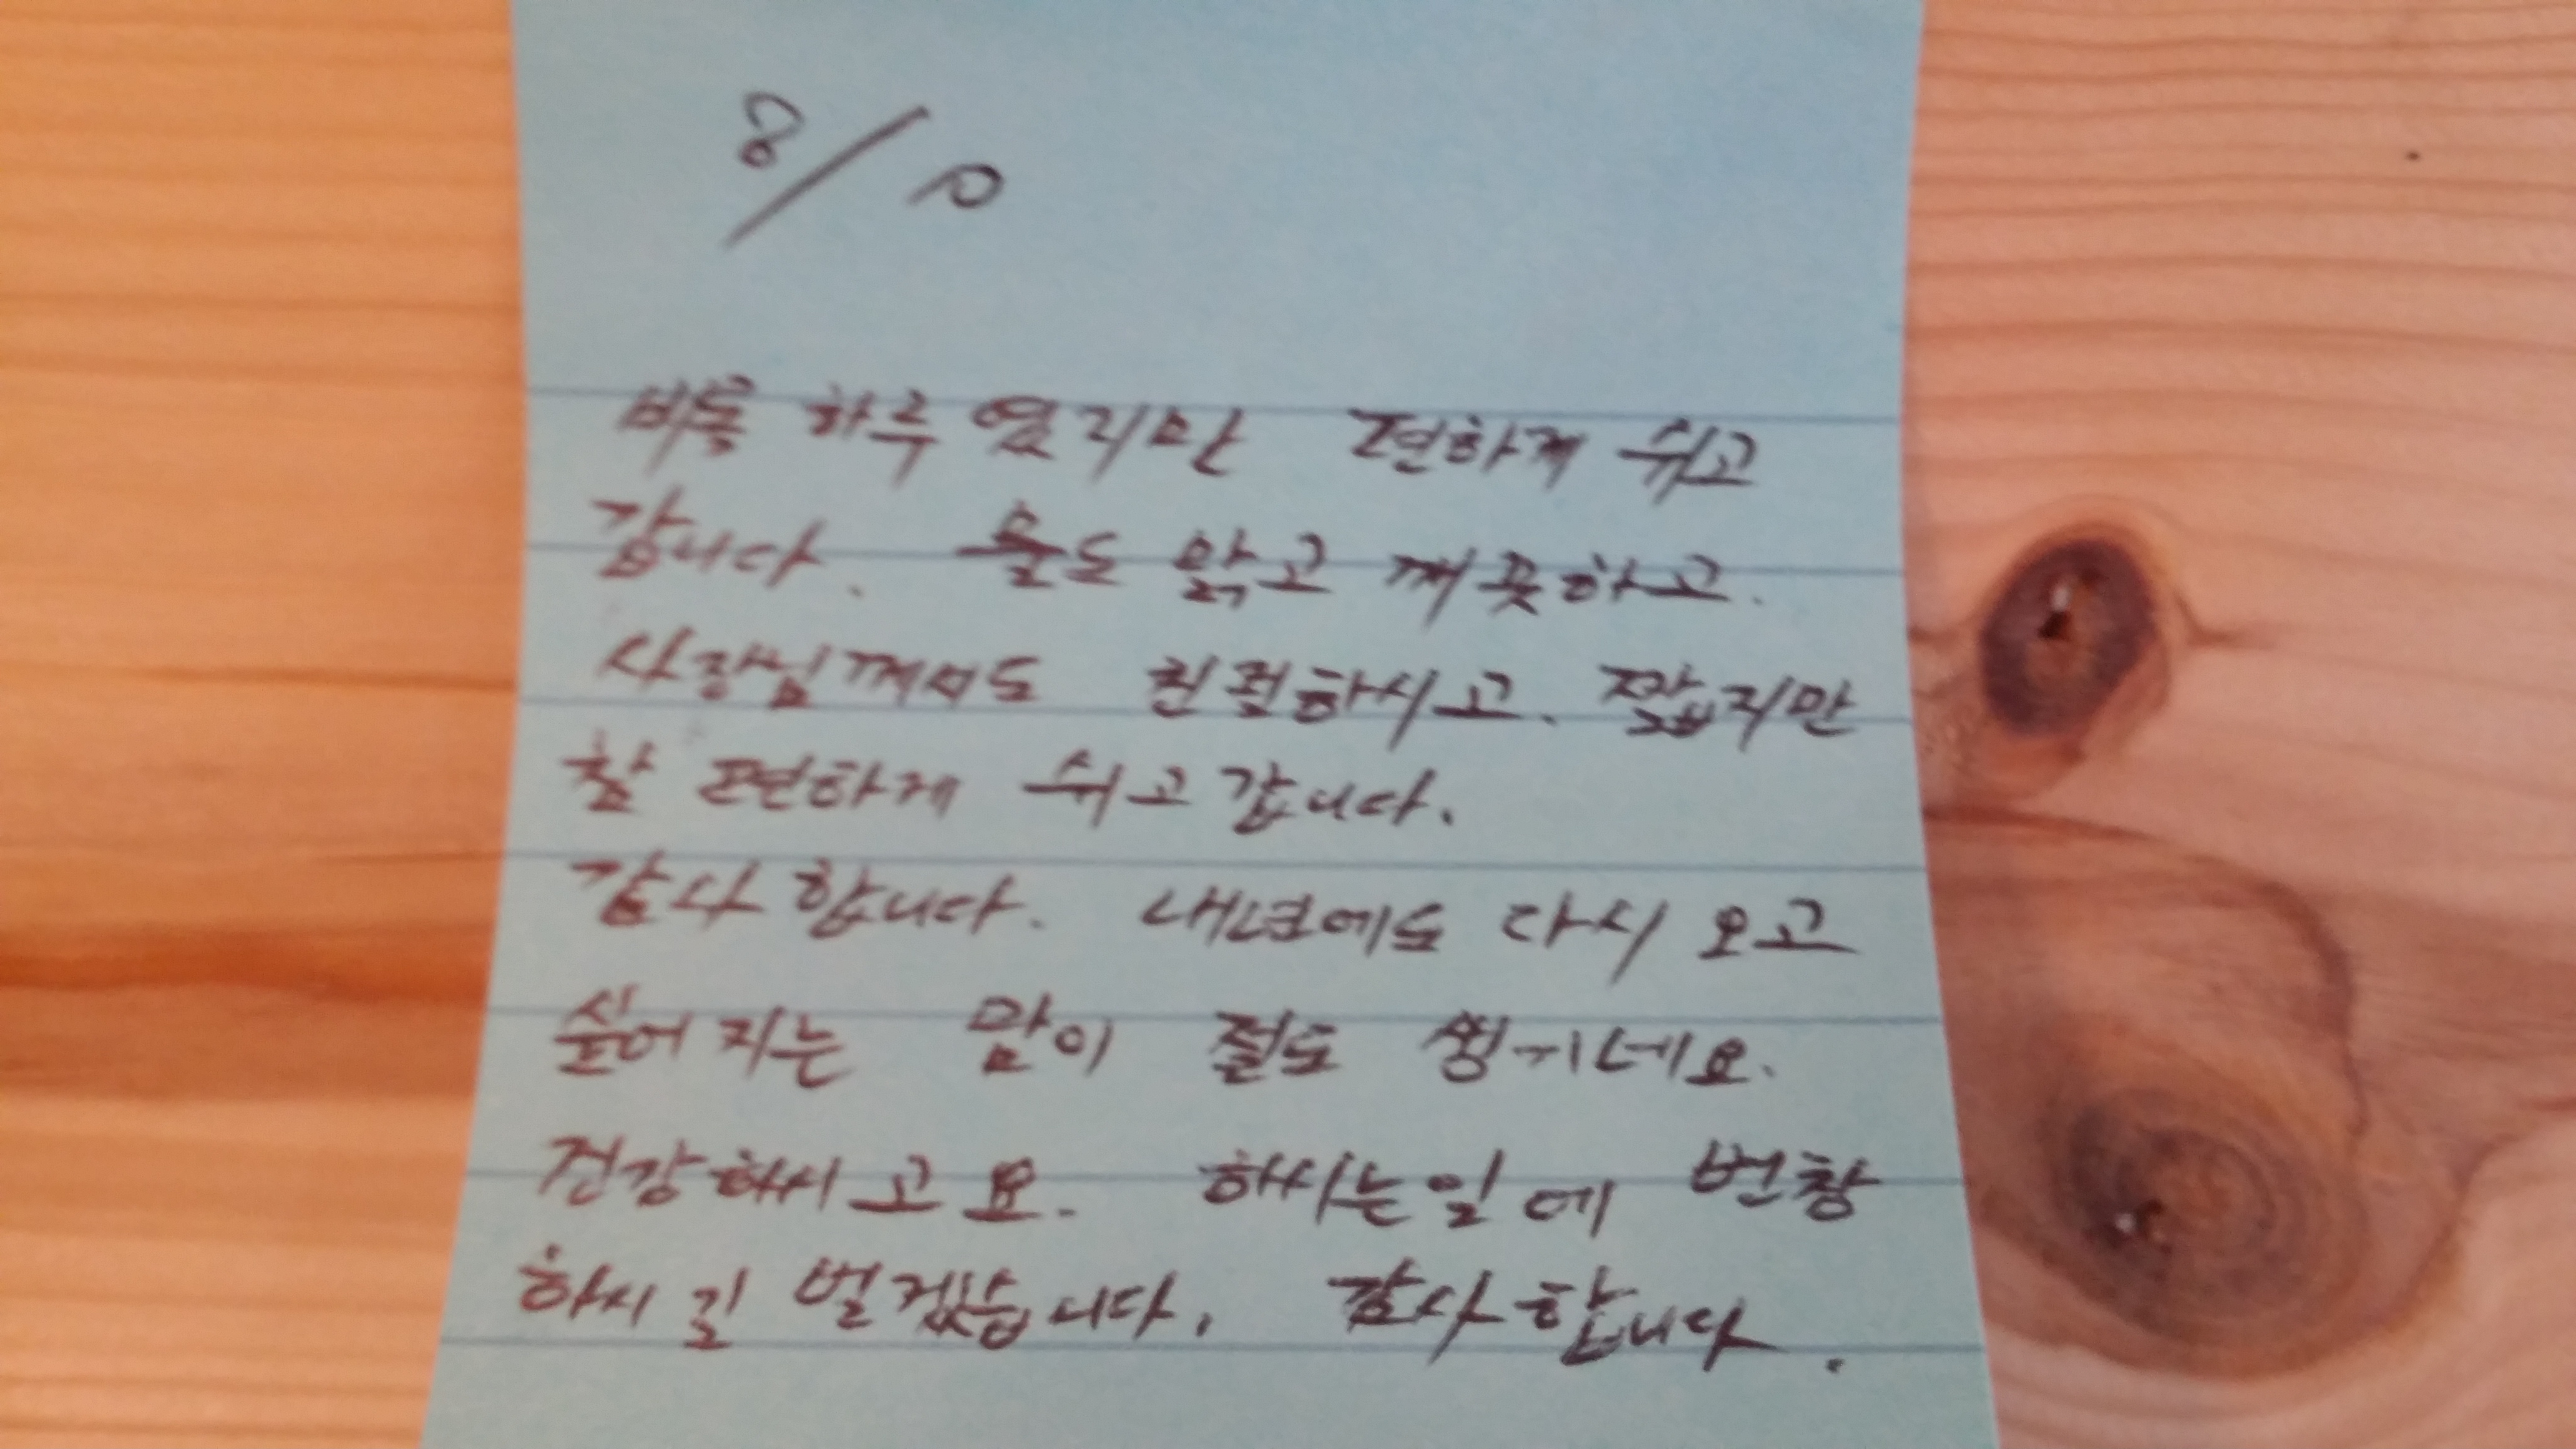 8/10
비록 하루 였지만 편하게 쉬고
갑니다. 물도 맑고 깨끗하고.
사장님께서도 친절하시고. 짧지만
참 편하게 쉬고 갑니다.
감사합니다. 내년에도 다시 오고
싶어지는 맘이 절로 생기네요.
건강하시고요. 하시는일에 번창
하시길 빌겠습니다. 감사합니다.